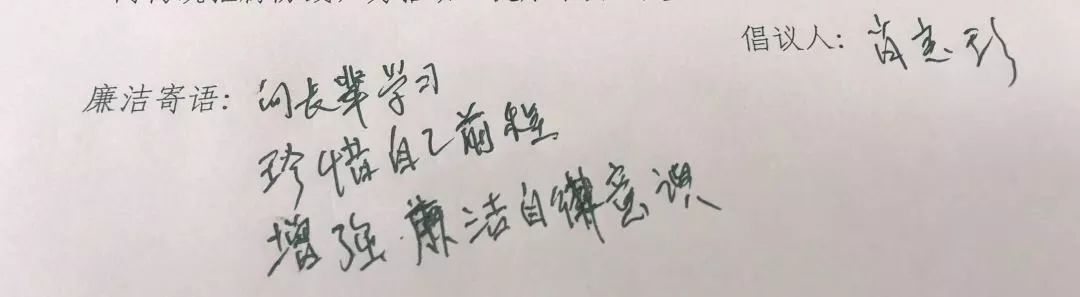 倡议人：肖志珍
廉洁寄语：向长辈学习
珍惜自己前程
增强廉洁自律意识